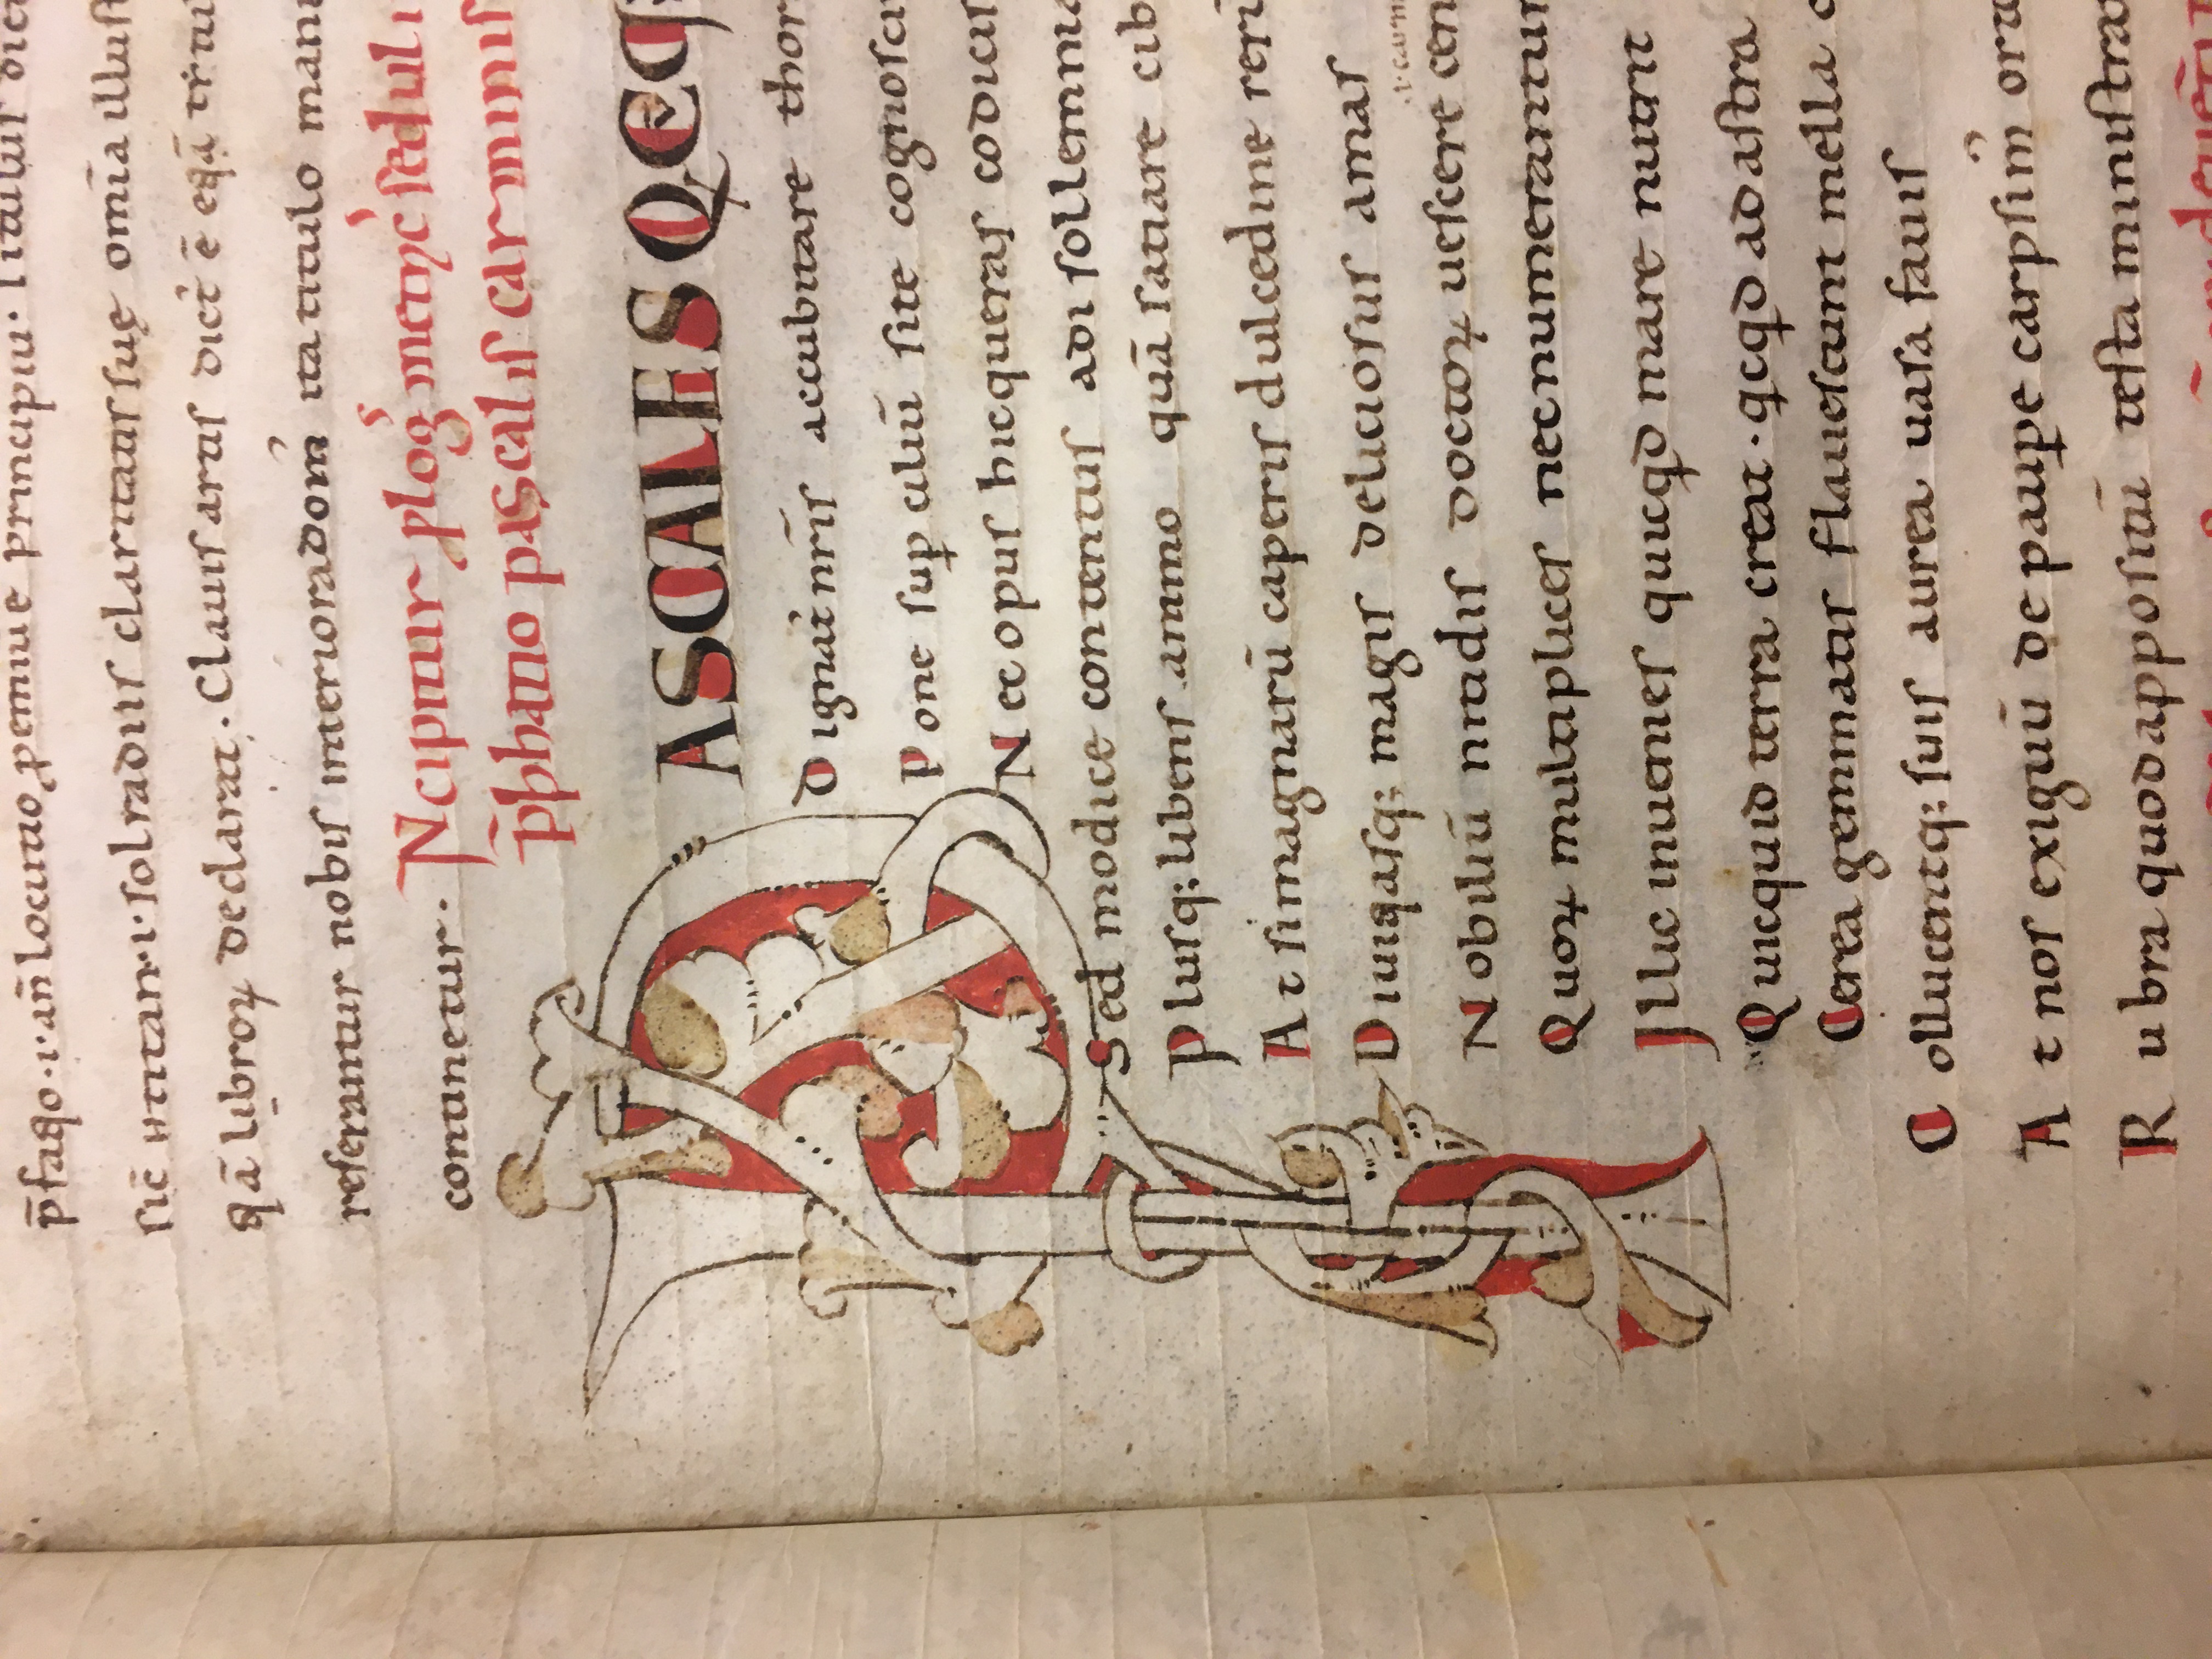 p̄faqo · i · an̄ locutio, penniue principiu · Titulus dici
sic̄ uttari · i · sol radiis claritatis suę om̄ia illust
qā libroꝝ declarat · Clauis artis dict̕ ē eq̄ā
referantur nobis interiora dom̕ ita titulo mani
continetur · Ncipitur plog̕ metric̕ seduli
p̄pbatio pascalis carminis
PASCALES QECQ
Dignat̕ nr̄is accubitare thor
Pone sup̱ciliū si te cognosci
Nec opus hic queras codicis
Sed modice contentus adi sollemnia
Plusq; libens animo quā satiare cib
At si magnarū caperis dulcedine rerū
Diuitiasq; magis deliciosus amas
Nobiliū nitadis doctoꝝ uescere cen
Quoꝝ multiplices nec numerantur
Illic inuenies quicq̄d mare nutrit
Quicquid terra creat · qcq̄d ad astra
Cerea gemmatas flauescant mella c
Collucentq; suis aurea uasa fauis
At nos exiguū de paup̱e carpsim̕ ora
Rubra quod appositū testa ministrat